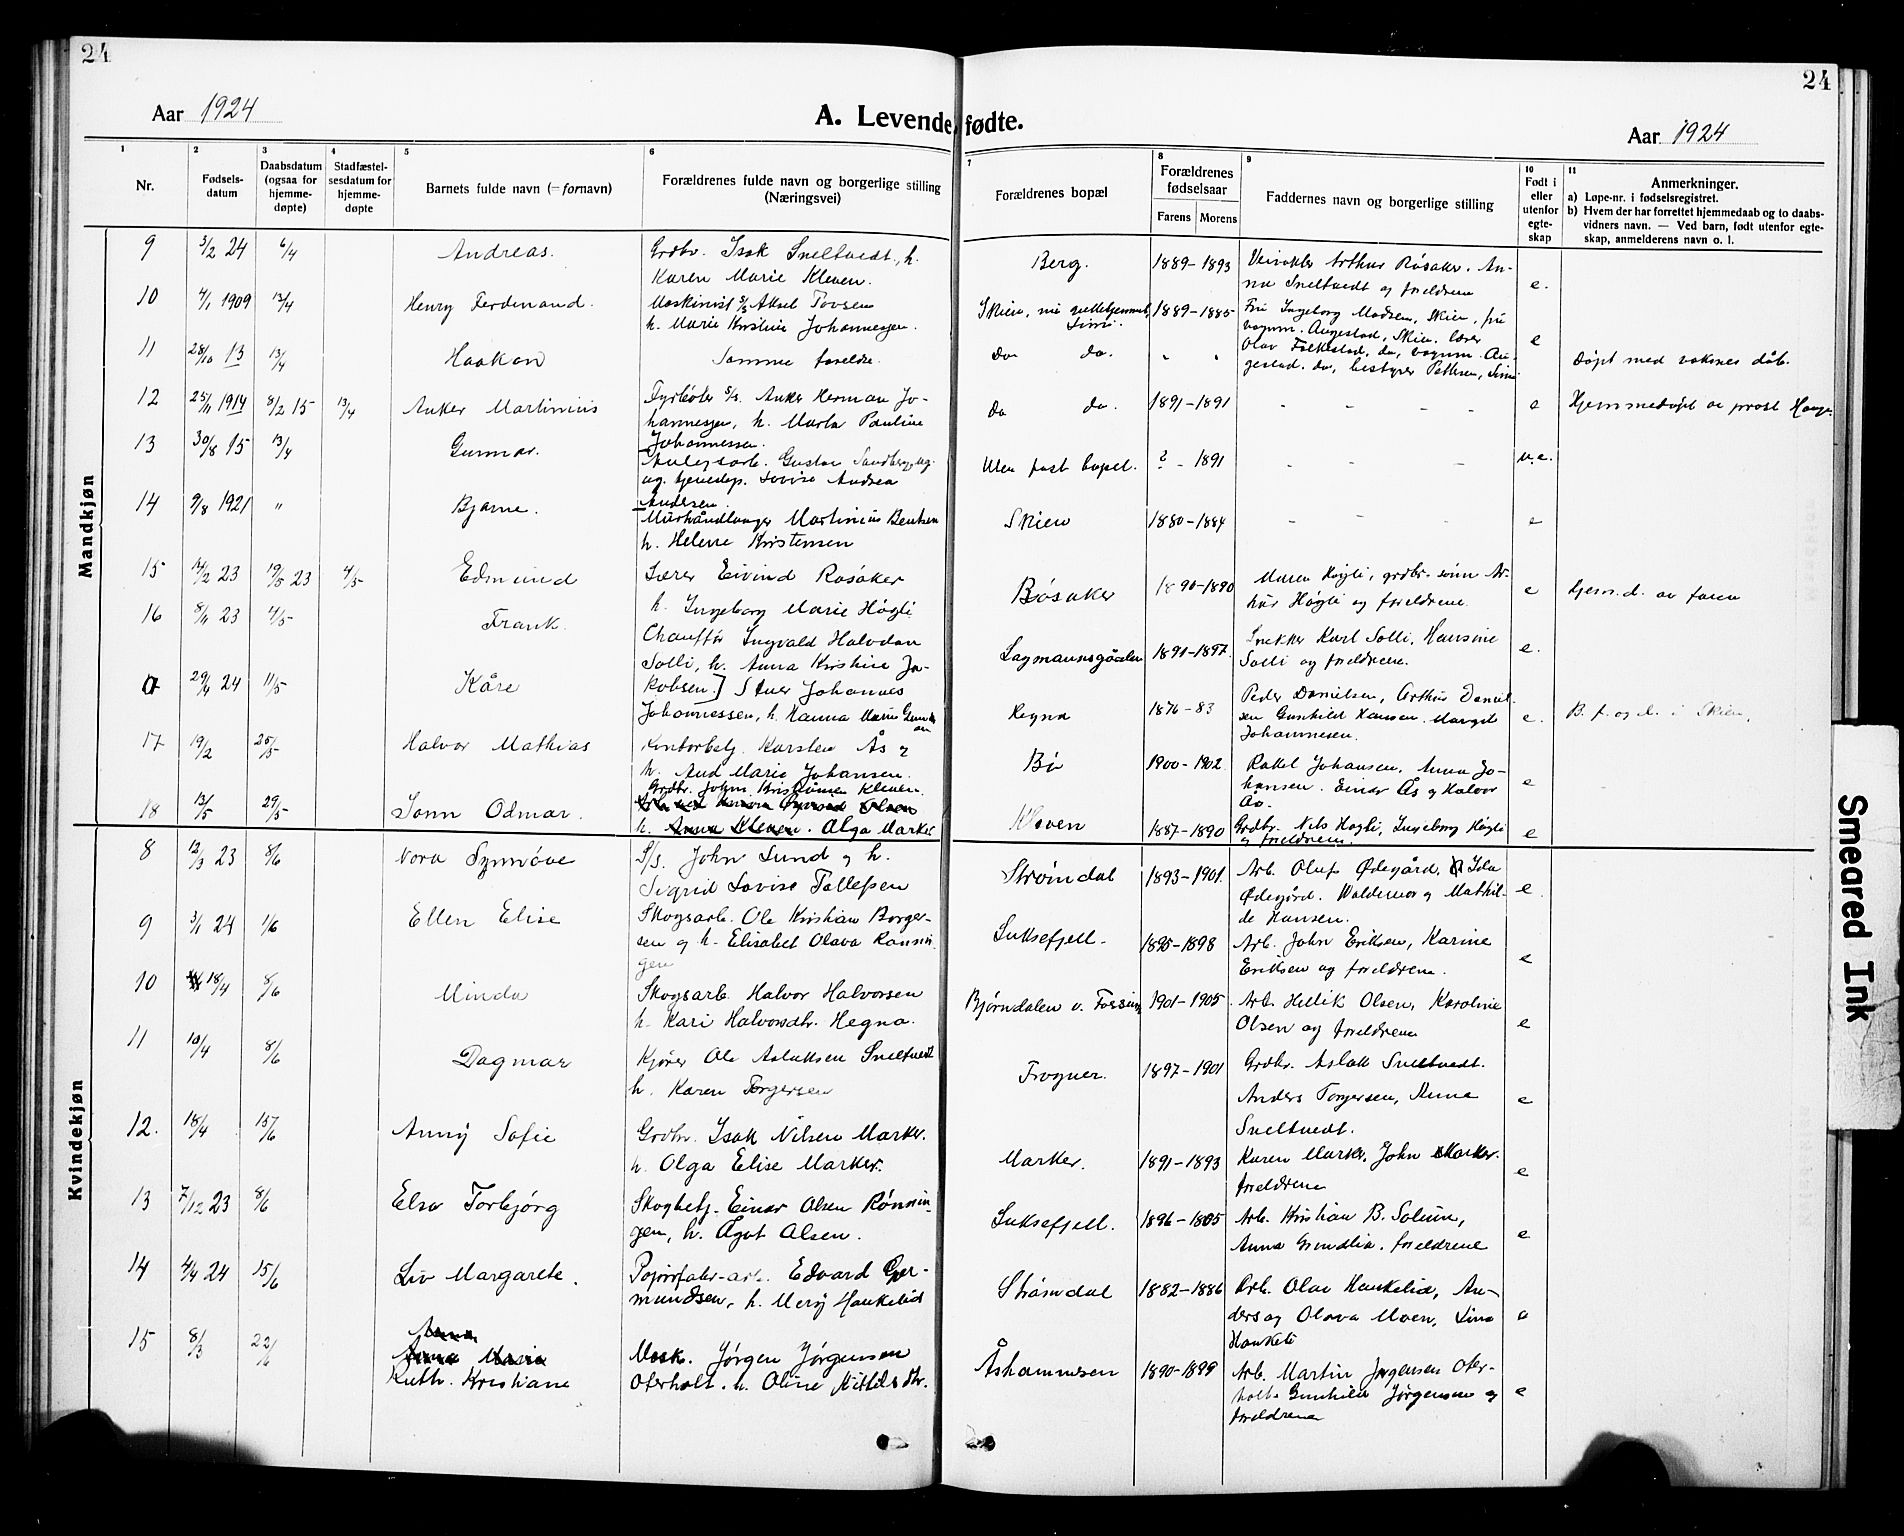 24
24
Aar 1924
A. Levende fødte.
Aar 1924
1 Nr.
2 Fødselsdatum
3 Daabsdatum (ogsaa for hjemmedøpte)
4 Stadfæstelsesdatum for hjemmedøpte
5 Barnets fulde navn (= fornavn)
6 Forældrenes fulde navn og borgerlige stilling (Næringsvei)
7 Forældrenes bopæl
8 Forældrenes fødselsaar
Farens Morens
9 Faddernes navn og borgerlige stilling
10 Født i eller utenfor egteskap
11 Anmerkninger.
a) Løpe-nr. i fødselsregistret.
b) Hvem der har forrettet hjemmedaab og to daabsvidners navn. — Ved barn, født utenfor egteskap, anmelderens navn o. l.
Mandkjøn
9 3/2 24 6/4 Andreas. Grdbr. Isak Sneltvedt, h.
Karen Marie Kleven. Berg. 1889-1893 Arthur Røsaker. Anna Sneltvedt og foreldrene e.
10 4/1 1909 13/4 Henry Ferdinand. Maskinist Aksel Tovsen
h. Marie Kristine Johannesen. Skien, 1889-1885 Fru Ingeborg Madsen, Skien, fru
vognm. Augestad, Skien. lærer
Olav Folkestad, do, vognm. Augestad. do, bestyrer Pettersen, e
11 28/10 13 13/4 Haakon Samme foreldre. do do. " " Døpt med voksnes dåb.
12 25/11 1914 8/2 15 13/4 Anker Martinius Fyrbøter s/s. Anker Herman Johannessen, h. Marta Pauline
Johannessen. do do. 1891-1891 - - - - e Hjemmedøpt av prost
13 30/8 15 13/4 Gunnar. Gustav Sandberg
Lovise Andrea
Andersen. Uten fast bopel. ? - 1891 - - - u.e.
14 9/8 1921 " Bjarne. Murhåndlanger Martinius Bentsen
h. Helene Kristensen Skien 1880-1884 - - - e
15 14/2 23 19/5 23 4/5 Edmund Lærer Eivind Røsåker
h. Ingeborg Marie Høgli Røsaker 1890-1890 Maren Høgli, grdbr. sønn Arthur Høgli og foreldrene. e hjem.d. av faren
16 8/11 23 4/5 Frank. Chauffør Ingvald Halvdan
Solli, h. Anna Kristine Jakobsen. Lagmannsgården 1891-1897. Snekker Karl Solli, Hansine
Solli og foreldrene. e.
0 29/4 24 11/5 Kåre Johannes
Johannessen, h. Hanna Marie Hegna 1876-83 Peder Danielsen, Arthur Danielsen Gunhild Hansen. Margit
Johannesen. e. B. f. og d. i Skien.
17 19/2 25/5 Halvor Mathias Kontorbetj. Karsten Ås og
h. Aud Marie Johansen. Bø 1900-1902. Rakel Johansen, Anna Johansen. Einar Ås og Halvor
Ås. e
18 13/5 29/5 Odmar. Grdbr. John Kristiansen Kleven.
h. Olga Marker Kleven 1887-1890 Grdbr. Nils Høgli, Ingeborg Høgli
og foreldrene. e
Kvindekjøn
8 12/3 23 8/6 Nora Synnøve S/s. John Lund og h.
Sigrid Lovise Tollefsen Strømdal 1893-1901. Arb. Oluf Ødegård. Ida
Ødegård. Waldemar og Mathilde Hansen. e.
9 3/1 24 1/6 Ellen Elise Skogsarb. Ole Kristian Borgersen og h. Elisabet Olava Rønningen Luksefjell. 1895-1898 Arb. John Eriksen, Karine
Eriksen og foreldrene. e
10 18/4 8/6 Minda Skogsarb. Halvor Halvorsen
h. Kari Halvorsdtr. Hegna. Bjørndalen v. Fossum 1901-1905 Arb. Hellik Olsen, Karoline
Olsen og foreldrene e
11 10/4 8/6 Dagmar Kjører Ole Aslaksen Sneltvedt
h. Karen Torgersen Frogner. 1897-1901 Grdbr. Aslak Sneltvedt.
Anders Torgersen, Anna
Sneltvedt. e
12. 18/4 15/6 Anny Sofie Grdbr. Isak Nilsen Marker.
h. Olga Elise Marker. Marker. 1891-1893 Karen Marker, John Marker.
foreldrene e
13 7/12 23 8/6 Elsa Torbjørg Skogbetj. Einar Olsen Rønningen, h. Ågot Olsen. Luksefjell. 1896-1805 Arb. Kristian B. Solum,
Anna Grindlia. foreldrene e
14 4/4 24 15/6 Liv Margarete. Papirfabr-arb. Edvard Germundsen, h. Mery Haukelid Strømdal 1882-1886 Arb. Olav Haukelid, Anders og Olava Moen, Lina
Haukeli e
15 8/3 22/6 Anna
Anna Marie
Ruth. Kristiane Mask. Jørgen Jørgensen
Oterholt. h. Oline Kittilsdtr. Åshammeren 1890-1899 Arb. Martin Jørgensen Oterholt. Gunhild Jørgensen og
foreldrene e
Smeared Ink